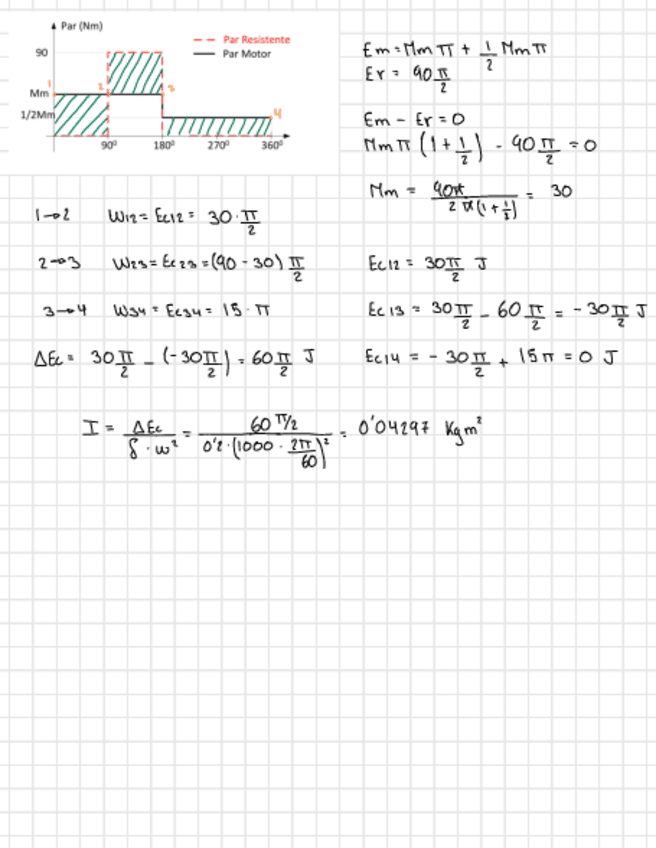 Par (Nm)
90
Mm
1/2Mm
1
2
3
4
90º
180º
270º
360º
Par Resistente
Par Motor
Em = Mm π + 1/2 Mm π
Er = 90 π/2
Em - Er = 0
Mm π (1 + 1/2) - 90 π/2 = 0
Mm = 90π / 2π(1 + 1/2) = 30
1→2 W12 = Ec12 = 30 · π/2
2→3 W23 = Ec23 = (90 - 30) π/2
Ec12 = 30π/2 J
3→4 W34 = Ec34 = 15 · π
Ec13 = 30π/2 - 60 π/2 = - 30π/2 J
ΔEc = 30π/2 - (-30π/2) = 60π/2 J
Ec14 = - 30π/2 + 15π = 0 J
I = ΔEc / δ · w² = 60 π/2 / 0'2 · (1000 · 2π/60)² = 0'04297 Kg m²